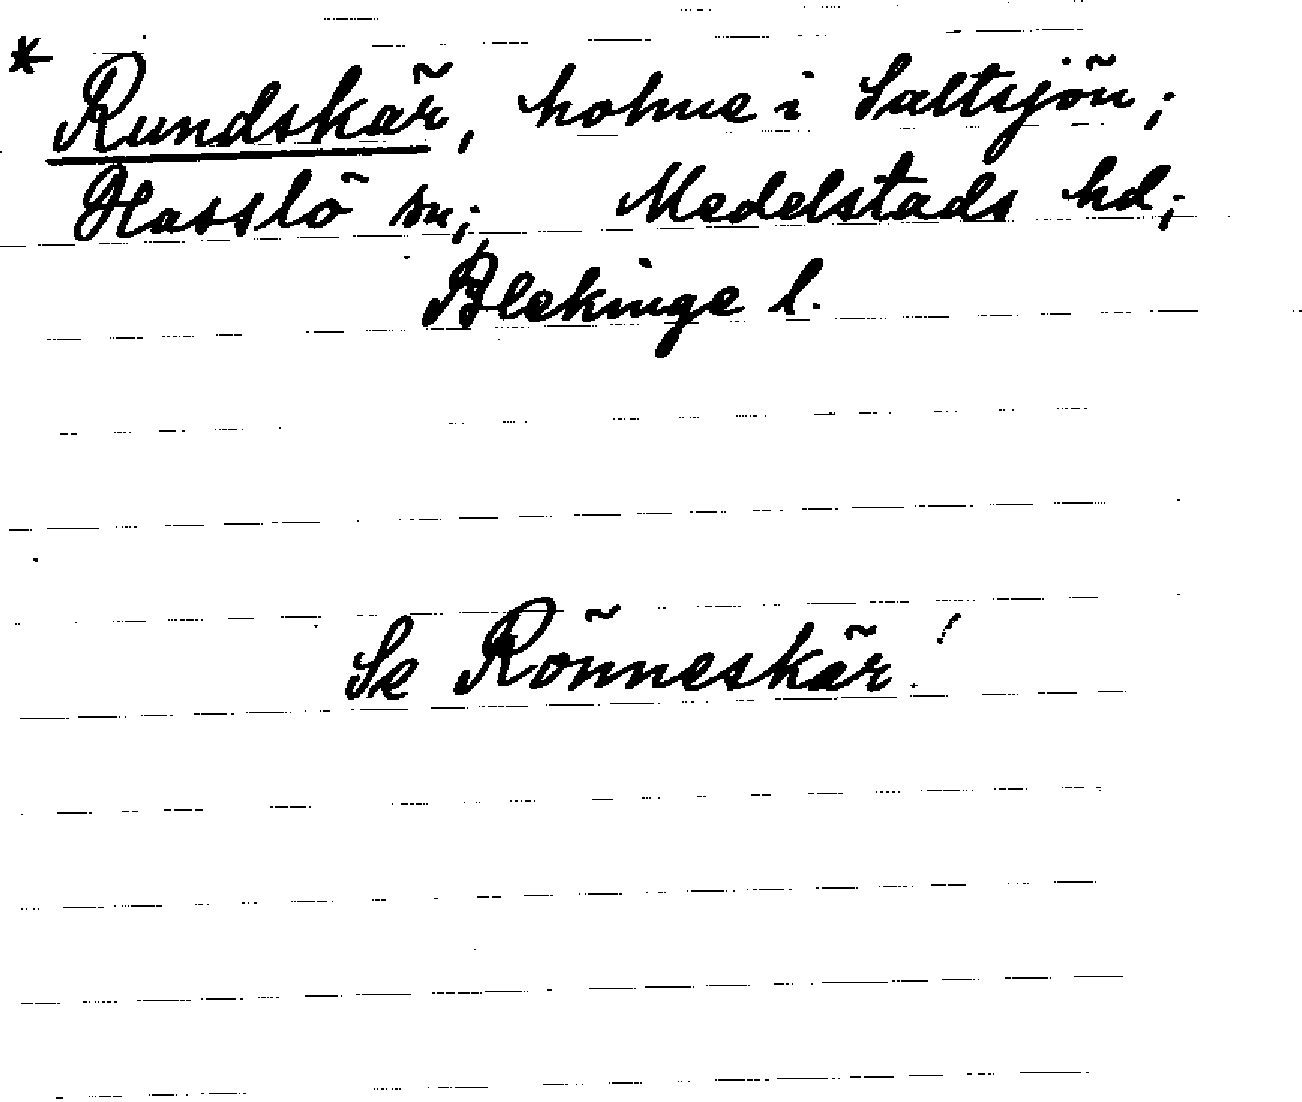 * Rundskär, holme i Saltsjön;
Hasslö sn; Medelstads hd;
Blekinge l.
Se Rönneskär!